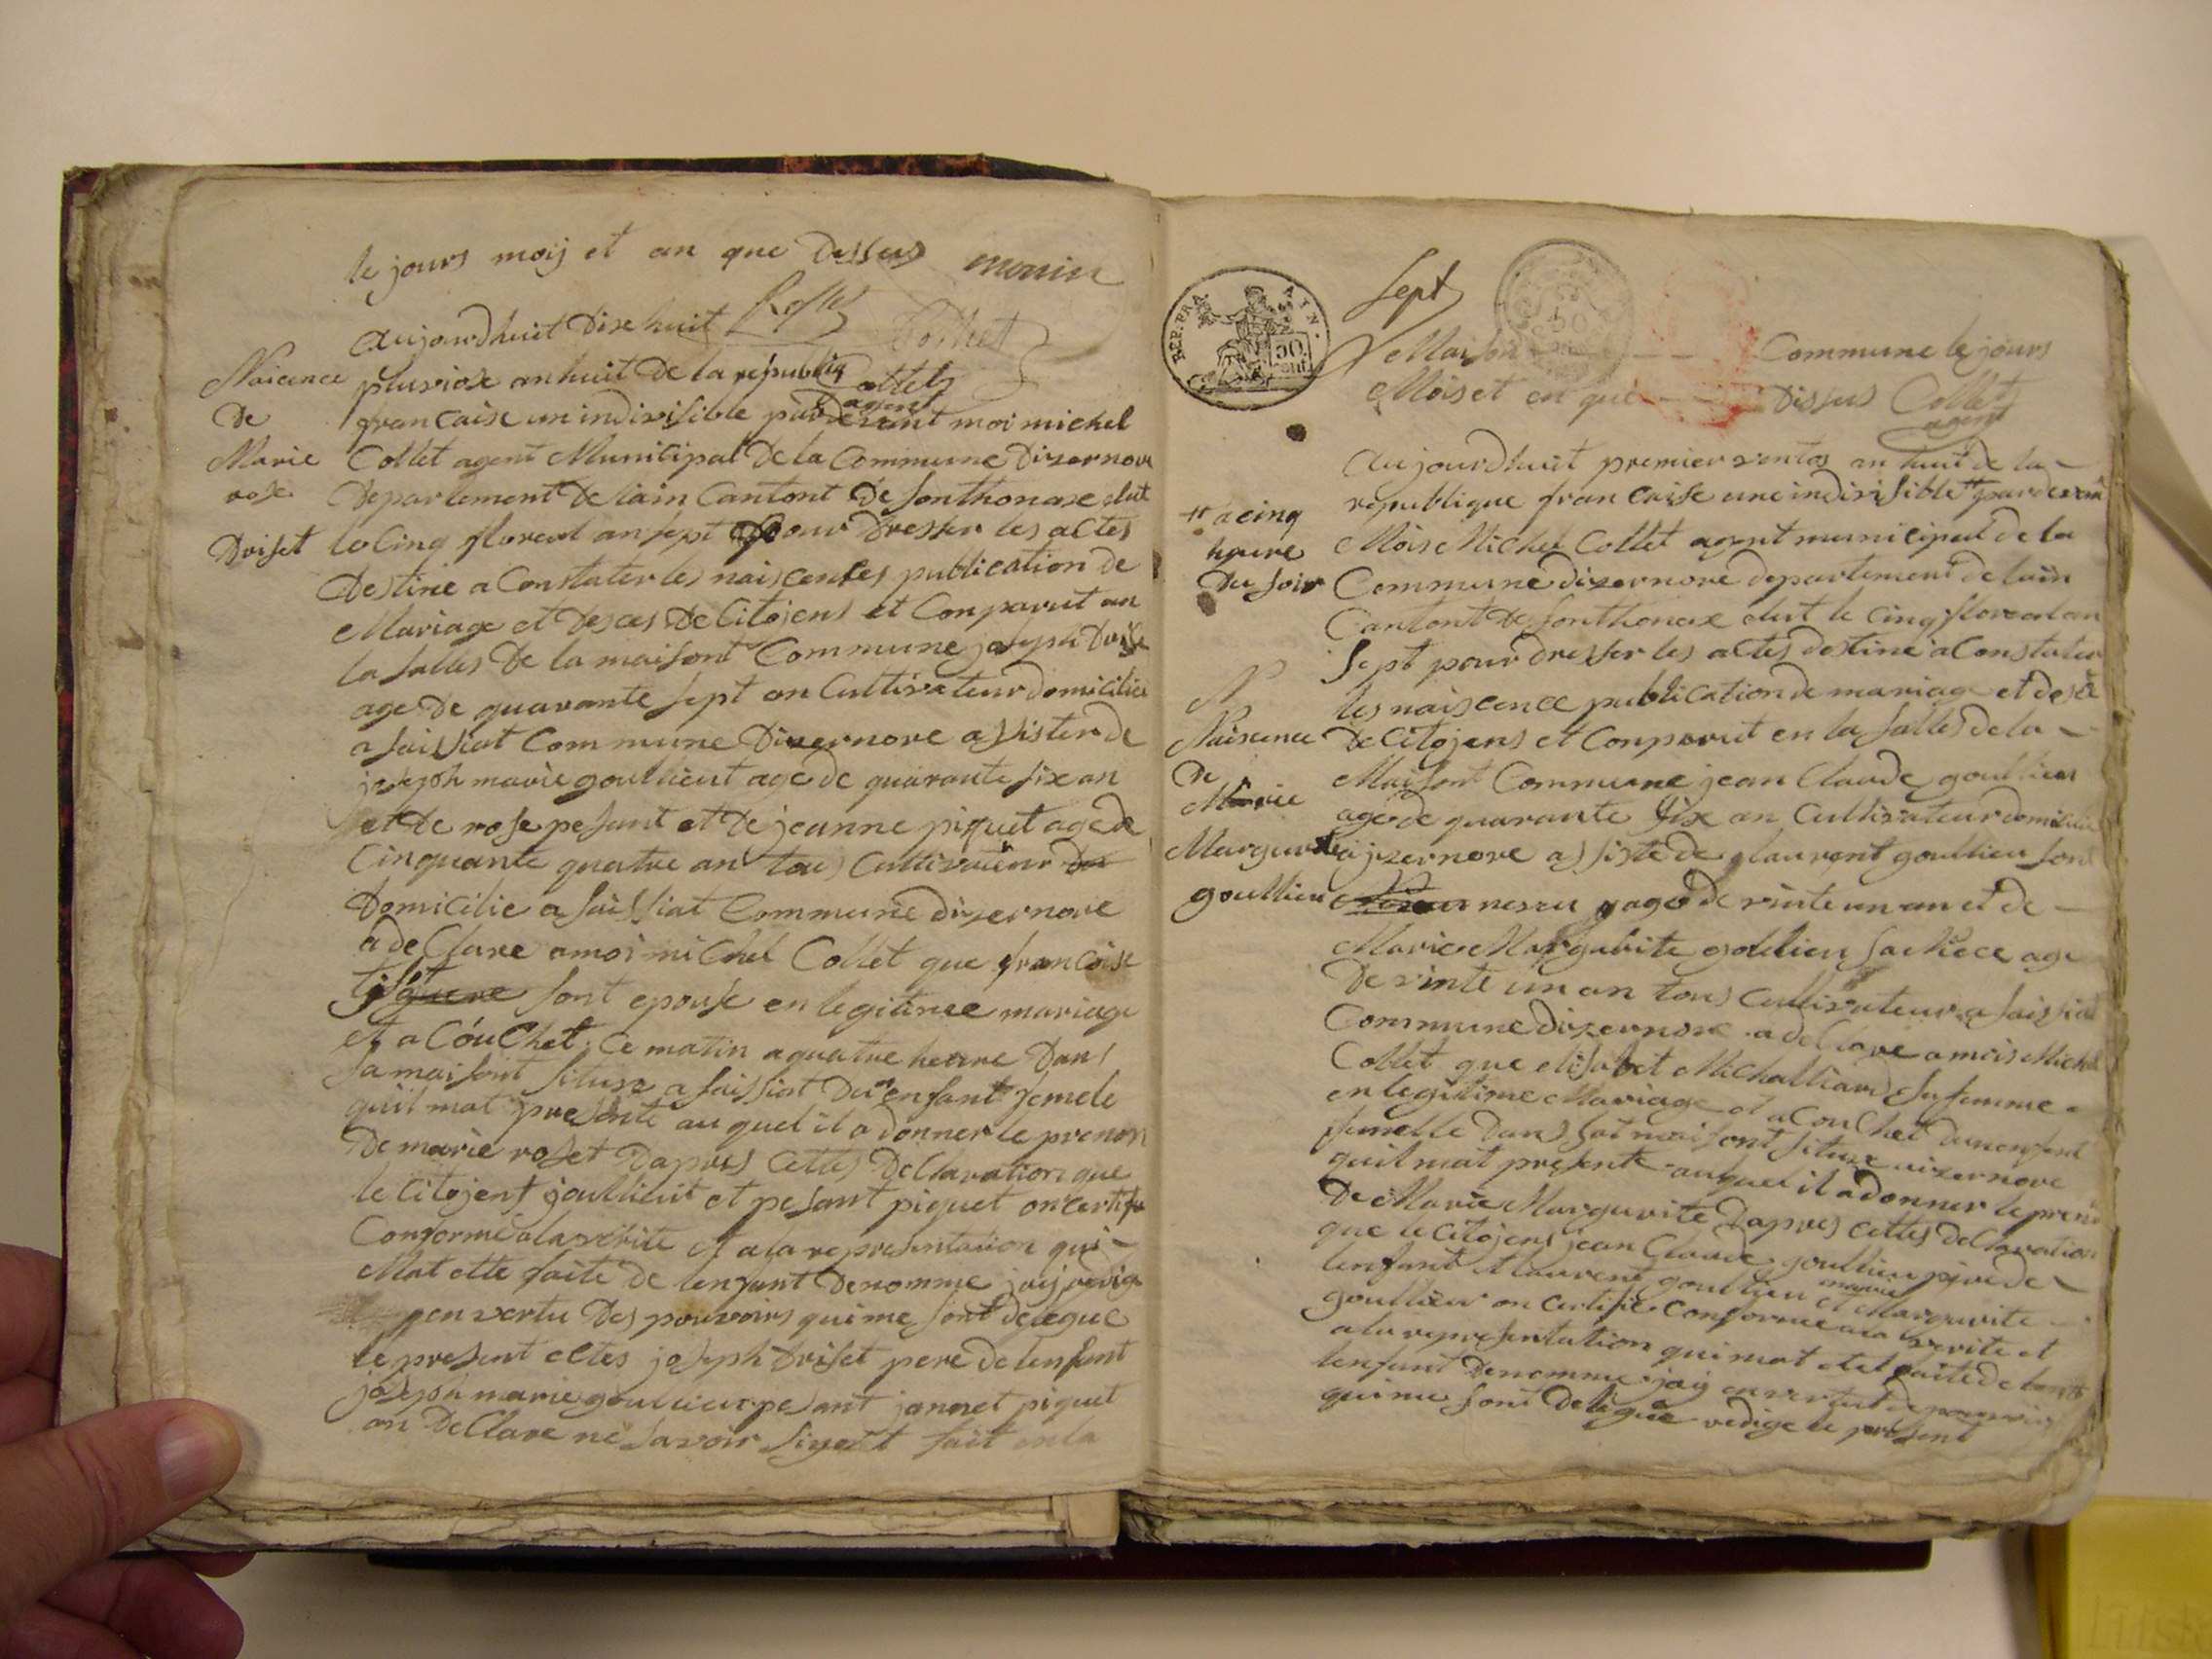 le jours mois et an que dessus monin
aujourdhuit dixhuit
Collet
Naicence
De
Marie
rose
Driset
pluviose an huit De la republiq Collet
agent
francaise un indivisible pardevant moi michel
Collet agent Municipal De la Commune Dizernore
Departement De lain Cantont De sonthonaxe elut
le Cinq floreal an sept pour Dresser les actes
Destine a Constater les naiscences publication de
Mariage et Desces De Citojens et Conparut en
la salles De la maisont Commune joseph Drise
age De quarante sept an Cultivateur domicilie
a saissiat Commune Dizernore assister de
joseph marie goullieut age de quarante six an
et De rose pesant et De jeanne piquet age de
Cinquante quatre an tous Cultivateur
Domicilie a saissiat Commune dizernore
a deClare a moi miChel Collet que francoise
sont epouse en legitimee mariage
et a CouChet Ce matin a quatre heure Dans
sa maisont situse a saissiat Dun enfant femele
quil mat presente au quel il a donner le prenon
De marie roset Dapres Cettes DeClaration que
le Citojent goullieut et pesant piquet on certifie
Conforme a la verite et a la representation qui
Mat ette faite de lenfant Denomme jaij redige
en vertu Des pouvoirs qui me sont delegue
le present actes joseph Driset pere de lenfant
joseph marie goullieut pesant jannet piquet
on DeClare ne savoir signet fait en la
REP. FRA. AIN.
50
Cent.
Sept
Maison Commune le jours
Mois et en que Dissus Collet
agent
aujourdhuit premier ventos an huit de la
republique francaise une indivisible pardevant
a cinq
heure
Du soir
Mois Michel Collet agent municipal de la
Commune dizernore departement de lain
Cantont De sonthonax elut le cinq floreal an
Sept pour dresser les actes destine a Constater
N
les naiscence publication de mariage et desce
Naicence
De
Marie
Margurite
goullieu
De Citojens et Conparut en la salles de la
Maisont Commune jean Claude goullieu
age de quarante six an Cultivateur domicilie
a jzernore assiste de laurent goullieu sont
neveu age de vinte un an et de
Marie Margurite goullieu sa Niece age
De vinte un an tous Cultivateur a saissiat
Commune dizernore a deClare a mois Michel
Collet que elisabet Michalliard sa femme
en legitime Mariage et a CouChet dun enfent
femelle Dans sat maisont situse a izernore
quil mat presente auquel il a donner le preno
De Marie Margurite Dapres cettes deClaration
que le Citojens jean Claude goullieu pere de
lenfant et laurent goullieu et marie Margurite
goullieu on certifie Conforme a la verite et
a la representation qui mat etet faite de
lenfant Denomme jaij en vertut de pouvoirs
qui me sont Delegue redige le present